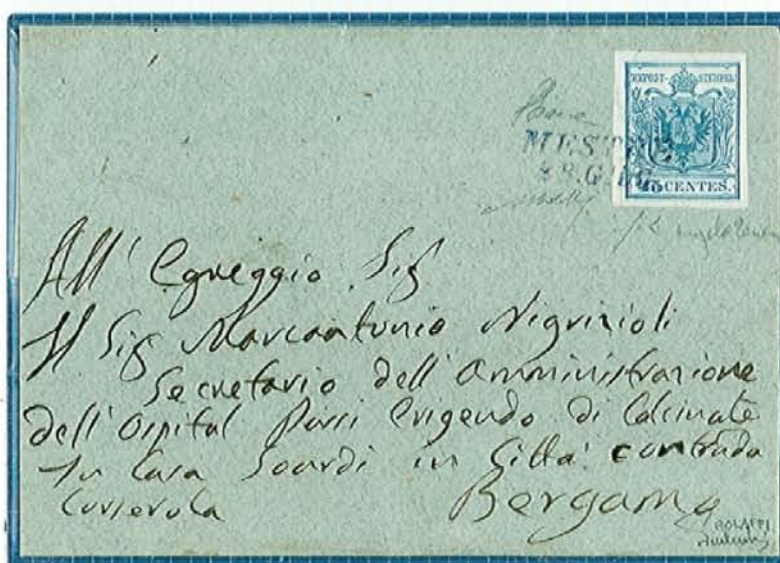 KKPOST-STEMPEL
MESTRE
45 CENTES.
All' Egreggio Sig
Il Sig Marcantonio Nigrizioli
Secretario dell' Amministrazione
dell' Ospital Erigendo di Calcinate
In Casa in Città contrada
Bergamo
BOLAFFI